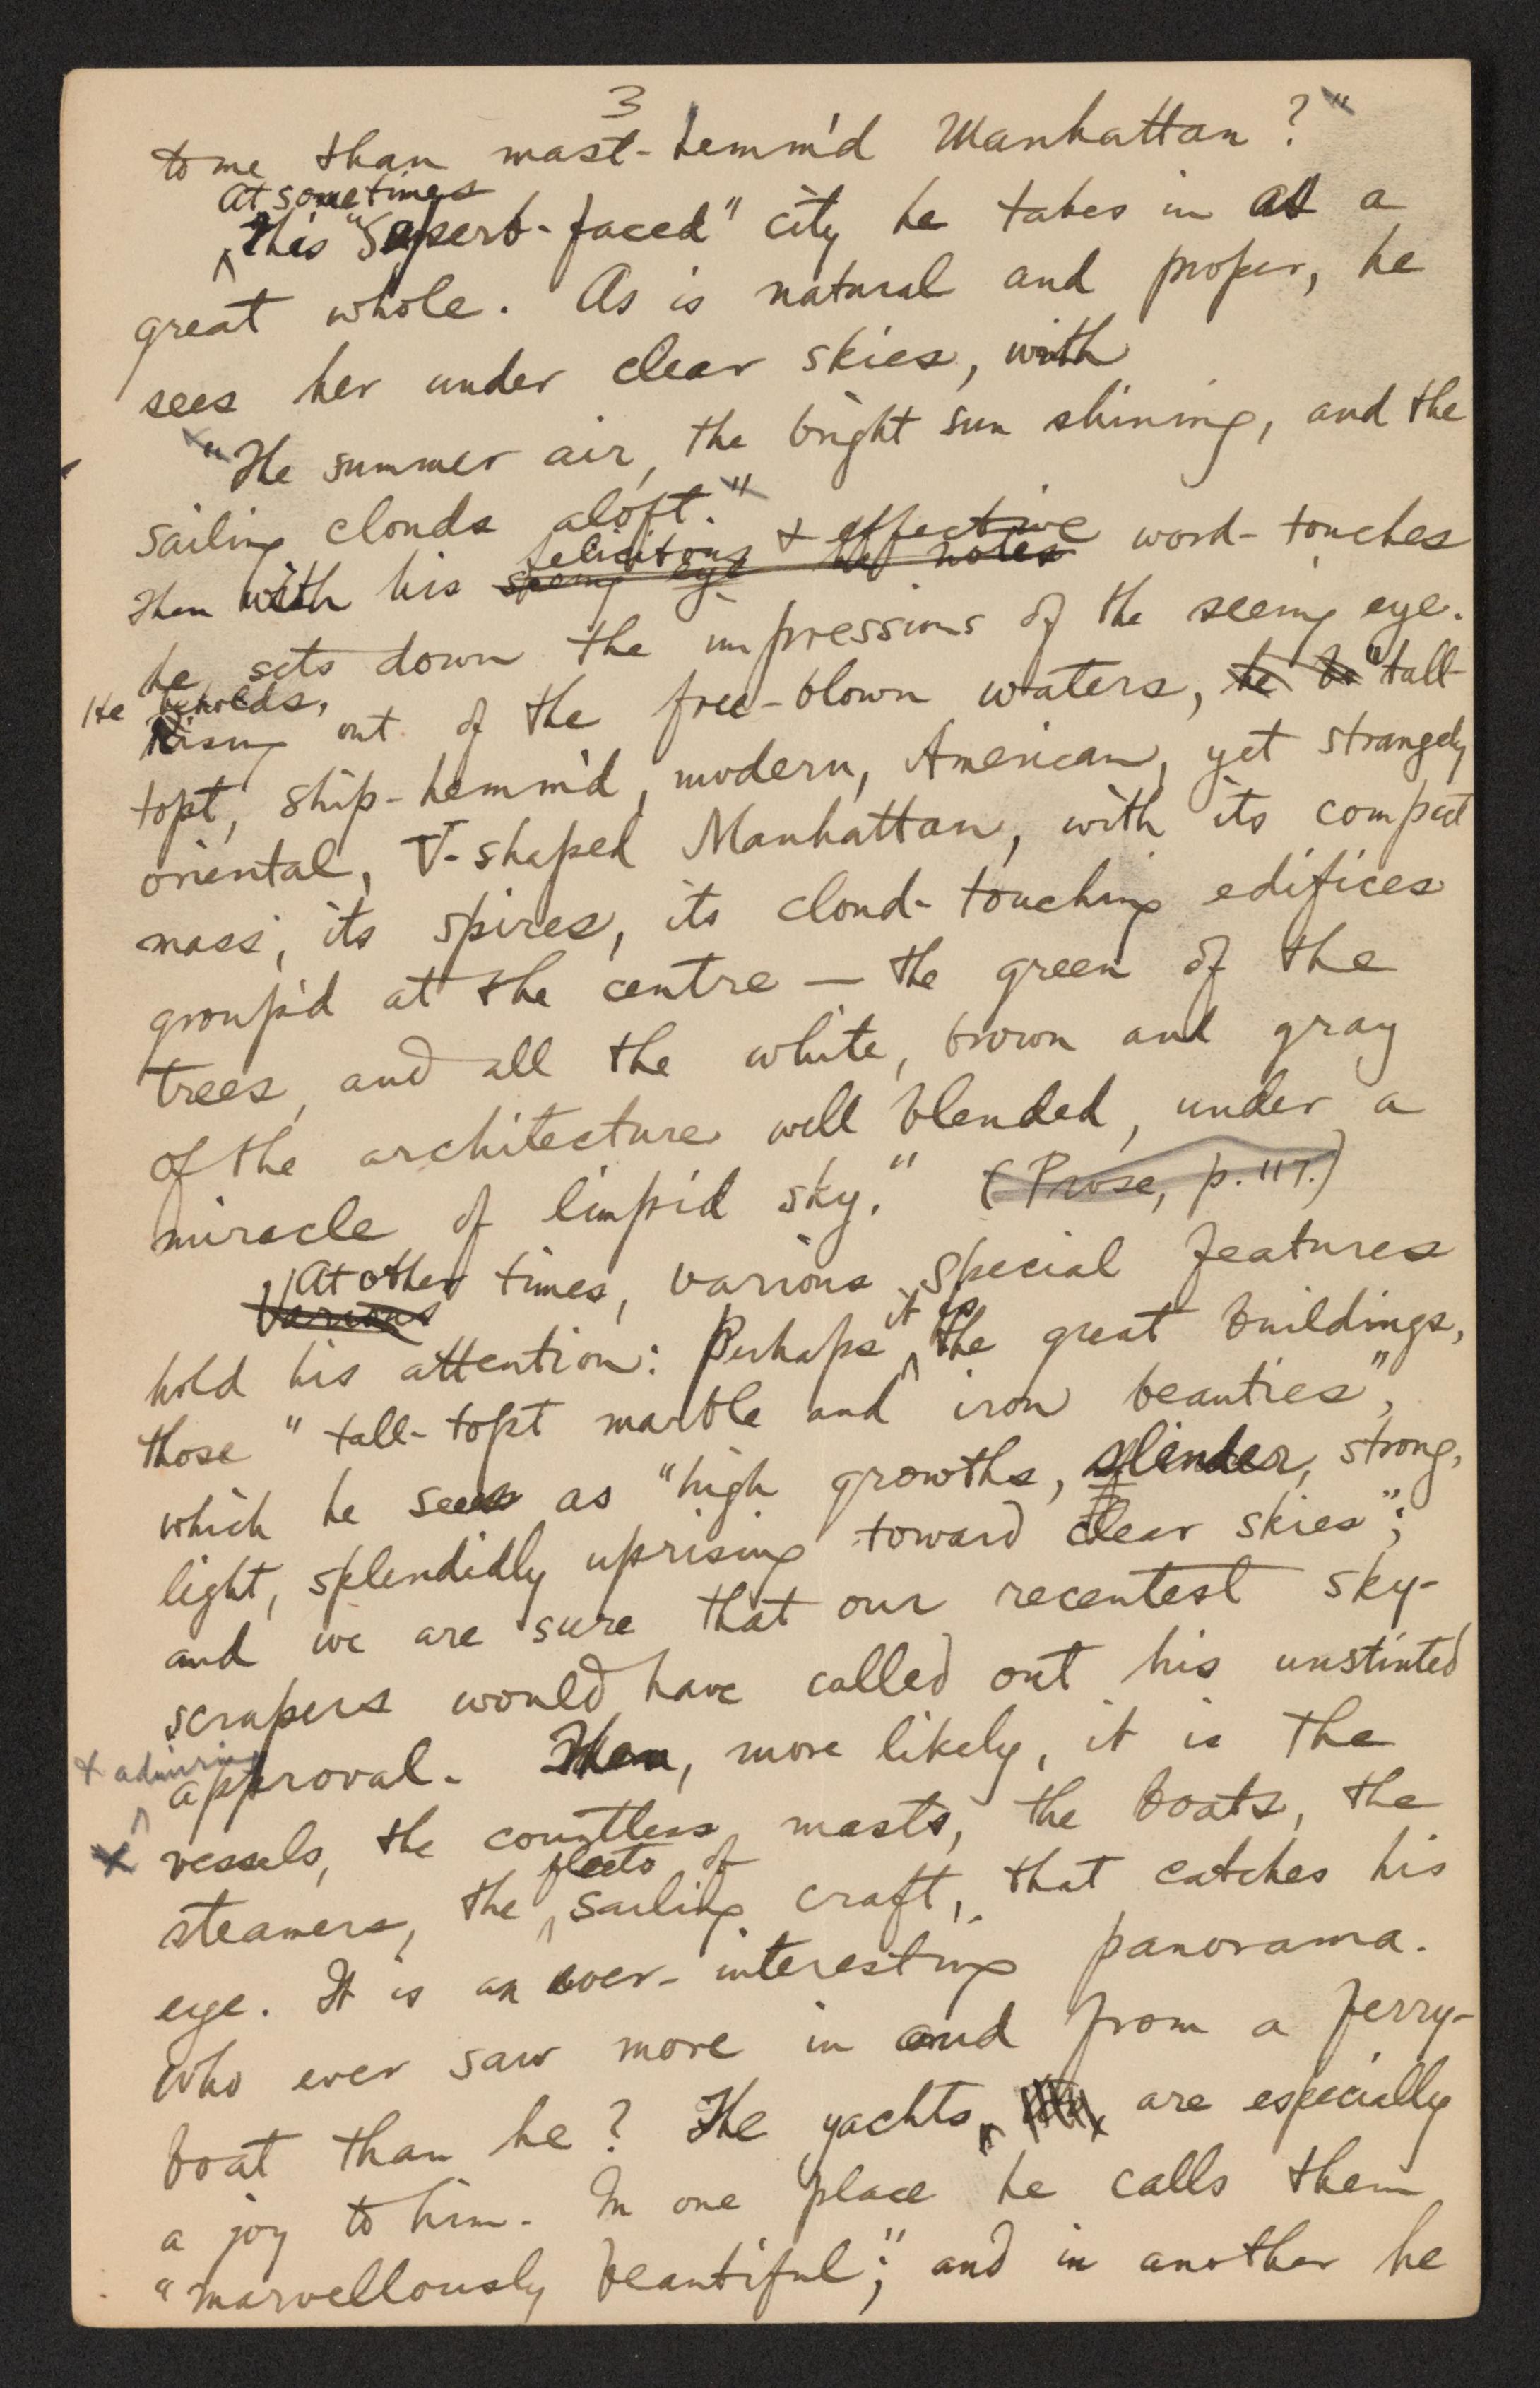 3
to me than mast-hemm'd Manhattan?"
At sometimes
this "superb-faced" city he takes in as a
great whole. As is natural and proper, he
sees her under clear skies, with
"The summer air, the bright sun shining, and the
sailing clouds aloft."
felicitous & effective
Then with his seeing eye he notes word-touches
he sets down the impressions of the seeing eye.
He beholds,
Rising out of the free-blown waters, he be "tall-
topt, ship-hemm'd, modern, American, yet strangely
oriental, V-shaped Manhattan, with its compact
mass, its spires, its cloud-touching edifices
group'd at the centre — the green of the
trees, and all the white, brown and gray
of the architecture well blended, under a
miracle of limpid sky." (Prose, p. 117.)
At other times, various special features
Various
it is
hold his attention: Perhaps the great buildings,
those "tall-topt marble and iron beauties",
which he sees as "high growths, slender, strong,
light, splendidly uprising toward clear skies";
and we are sure that our recentest sky-
scrapers would have called out his unstinted
& admiring
approval. Then, more likely, it is the
x vessels, the countless masts, the boats, the
fleets of
steamers, the sailing craft, that catches his
eye. It is an ever-interesting panorama.
Who ever saw more in and from a ferry-
boat than he? The yachts, are especially
a joy to him. In one place he calls them
"marvellously beautiful"; and in another he